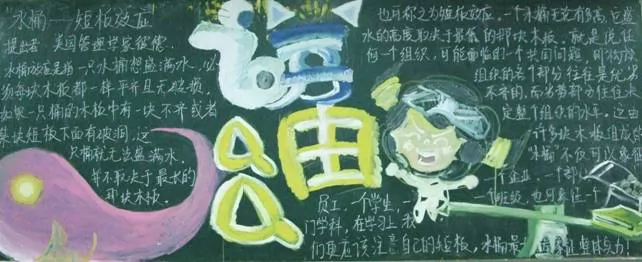 水桶——短板效应
提出者 美国管理学家彼德
水桶效应是指一只水桶想盛满水，必
须每块木板都一样平齐且无破损，
如果一只桶的木板中有一块不齐或者
某块短板下面有破洞，这
只桶就无法盛满水，
并不取决于最长的
那块木板。
也可称之为短板效应。一个水桶无论有多高，它盛
水的高度取决于最低的那块木板，就是说任
何一个组织，可能面临的一个共同问题，即构成
组织的各个部分往往是优劣
不齐的，而劣势部分往往决
定整个组织的水平。这由
许多块木板组成的
水桶不仅可以象征
一个企业、一个部
员工、一个学生、一
一个班级，也可象征一个
门学科，在学习上我
们更应该注意自己的短板，水桶最 整体实力！